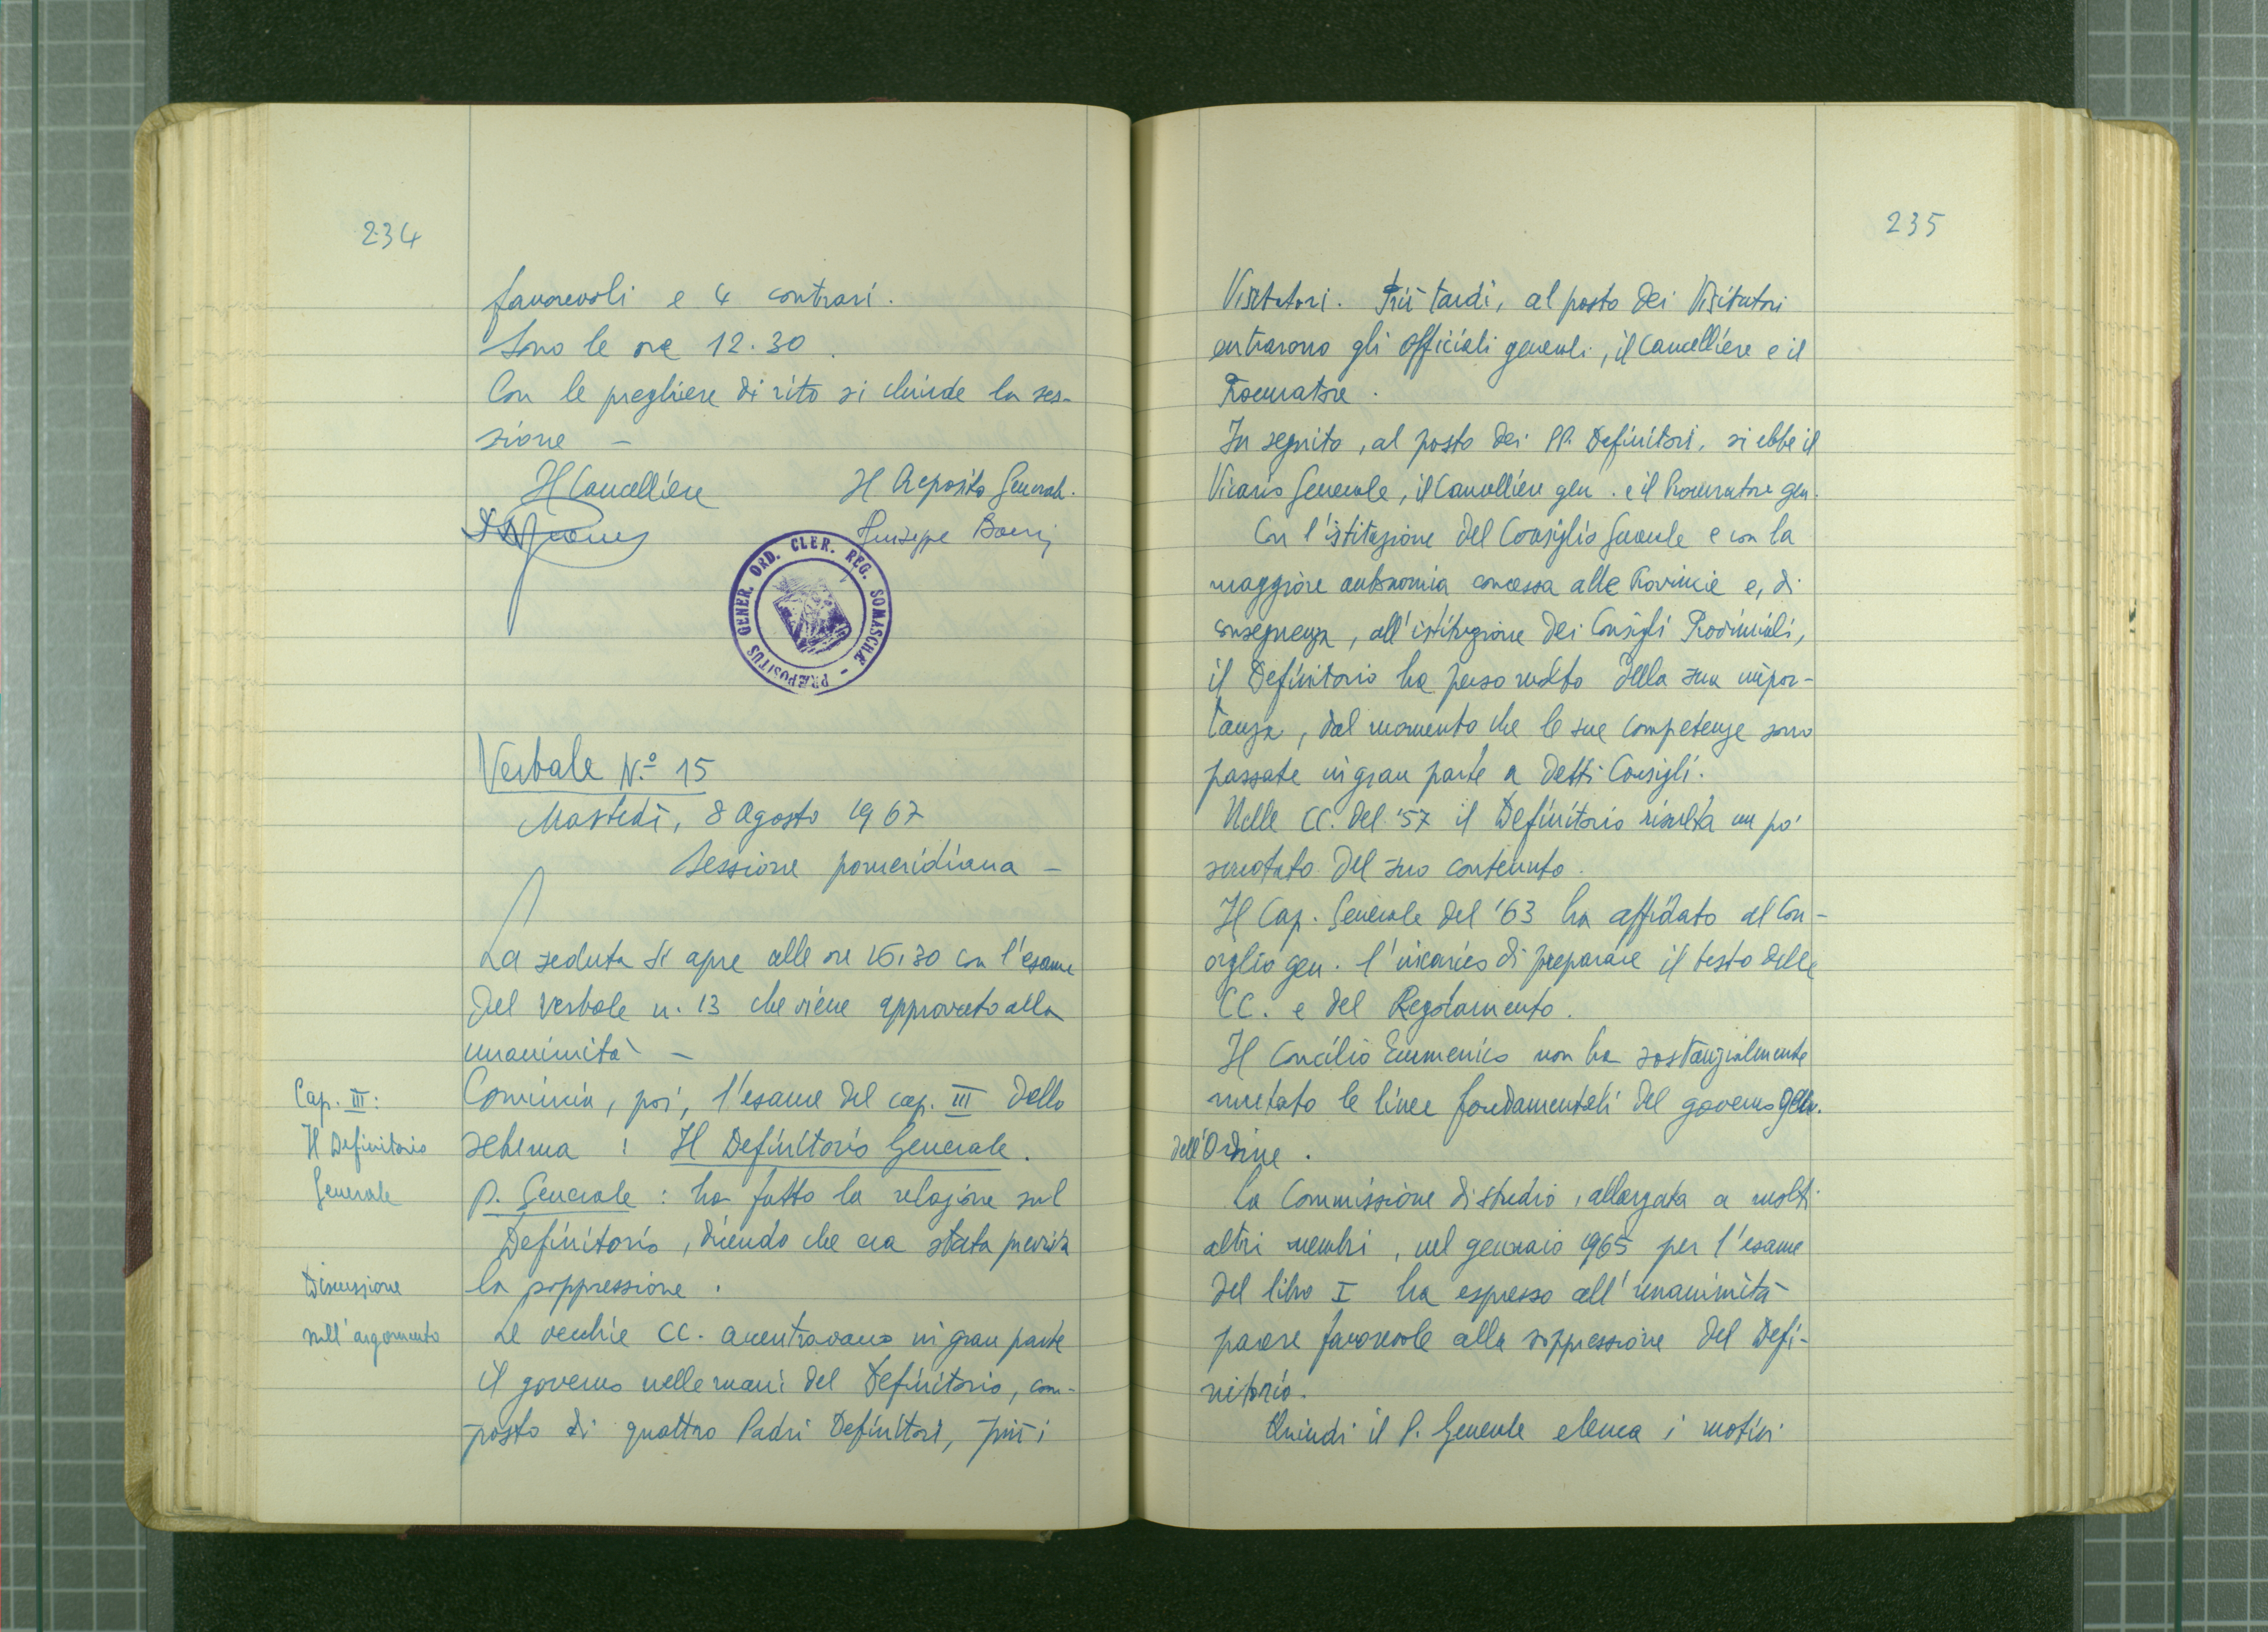 234
favorevoli e 4 contrari.
Sono le ore 12.30.
Con le preghiere di rito si chiude la ses-
sione -
Il Cancelliere Il Preposito Generale.
Giuseppe Boeri
PRÆPOSITUS GENER. ORD. CLER. REG. SOMASCHÆ -
Verbale N.º 15
Martedì, 8 Agosto 1967
Sessione pomeridiana -
La seduta si apre alle ore 16,30 con l'esame
del verbale n. 13 che viene approvato alla
unanimità -
Cap. III:
Il Definitorio
Generale
Comincia, poi, l'esame del cap. III dello
schema : Il Definitorio Generale.
P. Generale : ha fatto la relazione sul
Definitorio, dicendo che era stata prevista
la soppressione.
Discussione
sull'argomento
Le vecchie CC. accentravano in gran parte
il governo nelle mani del Definitorio, com-
posto di quattro Padri Definitori, più i
235
Visitatori. Più tardi, al posto dei Visitatori
entrarono gli officiali generali, il Cancelliere e il
Procuratore.
In seguito, al posto dei PP. Definitori, si ebbe il
Vicario Generale, il Cancelliere gen. e il Procuratore gen.
Con l'istituzione del Consiglio Generale e con la
maggiore autonomia concessa alle Provincie e, di
conseguenza, all'istituzione dei Consigli Provinciali,
il Definitorio ha perso molto della sua impor-
tanza, dal momento che le sue competenze sono
passate in gran parte a detti Consigli.
Nelle CC. del '57 il Definitorio risulta un po'
svuotato del suo contenuto.
Il Cap. Generale del '63 ha affidato al Con-
siglio gen. l'incarico di preparare il testo delle
CC. e del Regolamento.
Il Concilio Ecumenico non ha sostanzialmente
mutato le linee fondamentali del governo gen.
dell'Ordine.
La Commissione di studio, allargata a molti
altri membri, nel gennaio 1965 per l'esame
del libro I ha espresso all'unanimità
parere favorevole alla soppressione del Defi-
nitorio.
Quindi il P. Generale elenca i motivi